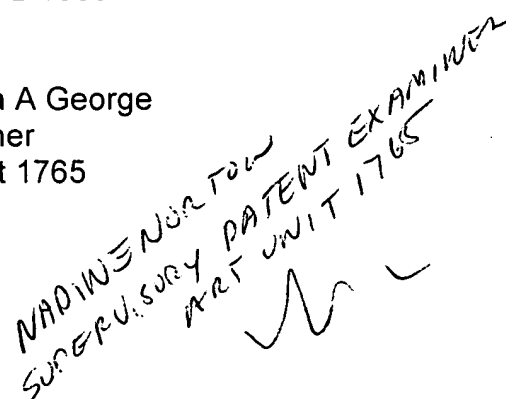 A George
ner
t 1765
NADINE NORTON
SUPERVISORY PATENT EXAMINER
ART UNIT 1765